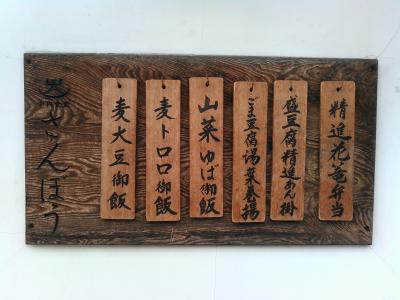 精進花篭弁当
盛豆腐精進あん掛
ごま豆腐湯葉巻揚
山菜ゆば御飯
麦トロロ御飯
麦大豆御飯
さんぼう